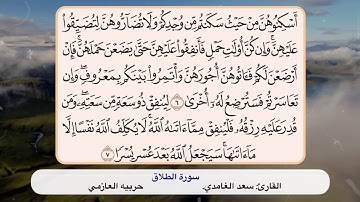 أَسْكِنُوهُنَّ مِنْ حَيْثُ سَكَنتُم مِّن وُجْدِكُمْ وَلَا تُضَآرُّوهُنَّ لِتُضَيِّقُوا۟
عَلَيْهِنَّ ۚ وَإِن كُنَّ أُو۟لَٰتِ حَمْلٍ فَأَنفِقُوا۟ عَلَيْهِنَّ حَتَّىٰ يَضَعْنَ حَمْلَهُنَّ ۚ فَإِنْ
أَرْضَعْنَ لَكُمْ فَـَٔاتُوهُنَّ أُجُورَهُنَّ وَأْتَمِرُوا۟ بَيْنَكُم بِمَعْرُوفٍ ۖ وَإِن
تَعَاسَرْتُمْ فَسَتُرْضِعُ لَهُۥٓ أُخْرَىٰ ٦ لِيُنفِقْ ذُو سَعَةٍ مِّن سَعَتِهِۦ ۖ وَمَن
قُدِرَ عَلَيْهِ رِزْقُهُۥ فَلْيُنفِقْ مِمَّآ ءَاتَىٰهُ ٱللَّهُ ۚ لَا يُكَلِّفُ ٱللَّهُ نَفْسًا إِلَّا
مَآ ءَاتَىٰهَا ۚ سَيَجْعَلُ ٱللَّهُ بَعْدَ عُسْرٍ يُسْرًا ٧
سورة الطلاق
القارئ: سعد الغامدي. حربيه العازمي